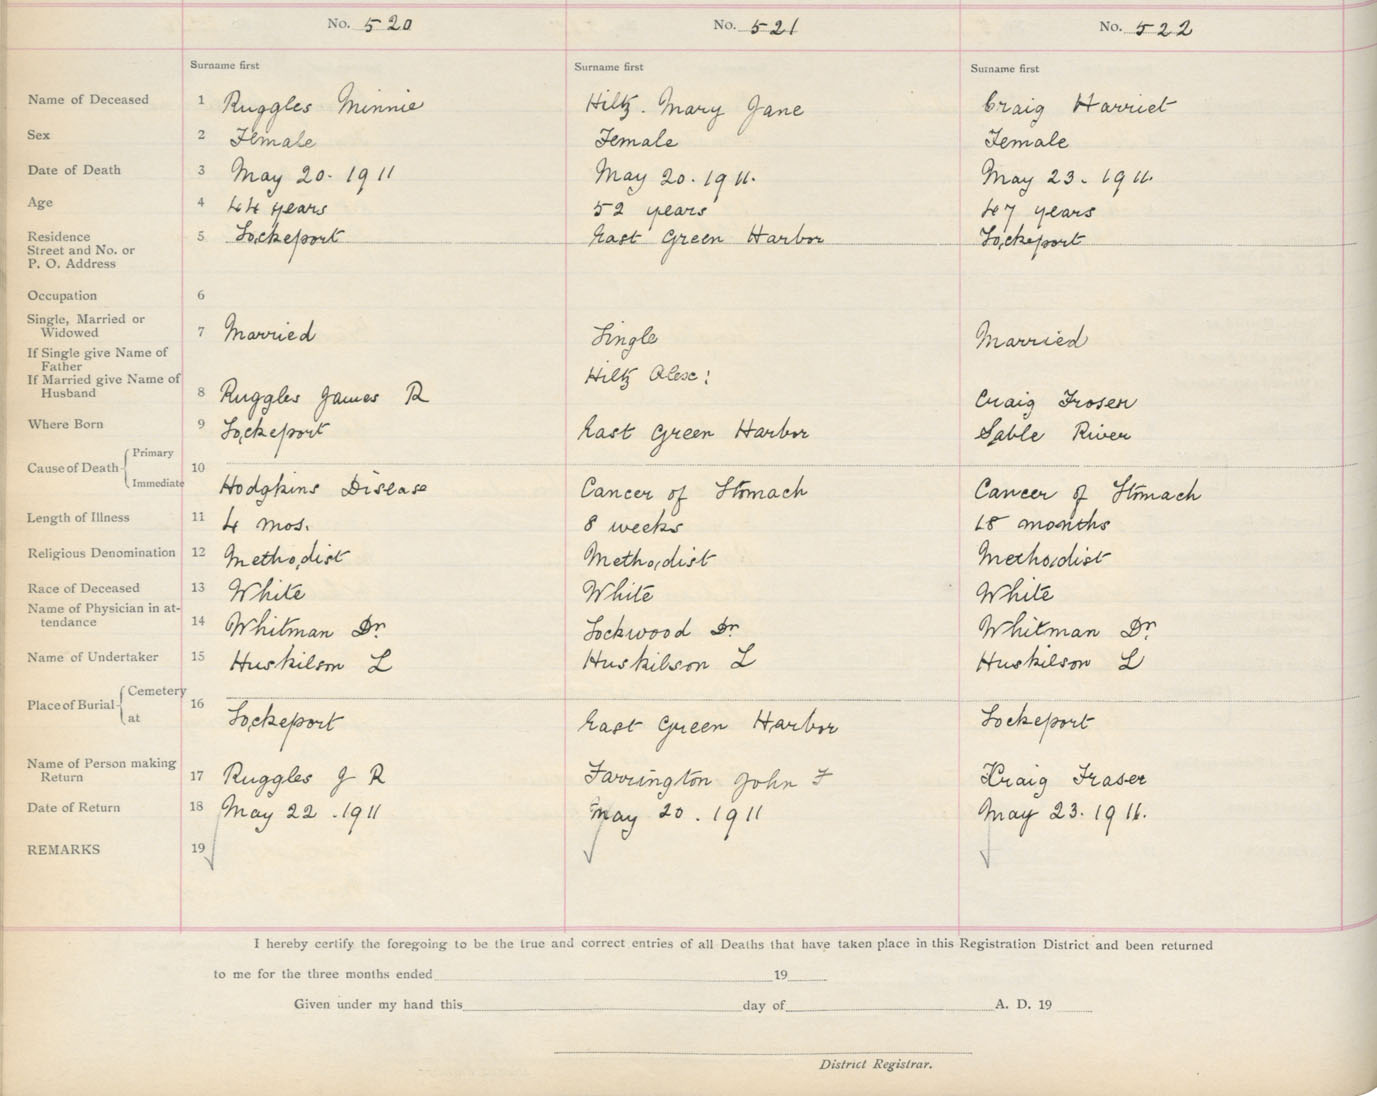 No. 520 No. 521 No. 522
Surname first Surname first Surname first
Name of Deceased 1 Ruggles Minnie Hiltz. Mary Jane Craig Harriet
Sex 2 Female Female Female
Date of Death 3 May 20. 1911 May 20. 1911. May 23. 1911.
Age 4 44 years 52 years 47 years
Residence 5 Lockeport East Green Harbor Lockeport
Street and No. or
P. O. Address
Occupation 6
Single, Married or
Widowed 7 Married Single Married
If Single give Name of
Father Hiltz Alex:
If Married give Name of
Husband 8 Ruggles James R Craig Froser
Where Born 9 Lockeport East Green Harbor Sable River
Cause of Death Primary 10
Immediate Hodgkins Disease Cancer of Stomach Cancer of Stomach
Length of Illness 11 4 mos. 8 weeks 18 months
Religious Denomination 12 Methodist Methodist Methodist
Race of Deceased 13 White White White
Name of Physician in at-
tendance 14 Whitman Dr. Lockwood Dr. Whitman Dr.
Name of Undertaker 15 Huskilson L Huskilson L Huskilson L
Place of Burial Cemetery 16
at Lockeport East Green Harbor Lockeport
Name of Person making
Return 17 Ruggles J R Farrington John F Kraig Fraser
Date of Return 18 May 22. 1911 May 20. 1911 May 23. 1911.
REMARKS 19
I hereby certify the foregoing to be the true and correct entries of all Deaths that have taken place in this Registration District and been returned
to me for the three months ended 19
Given under my hand this day of A. D. 19
District Registrar.